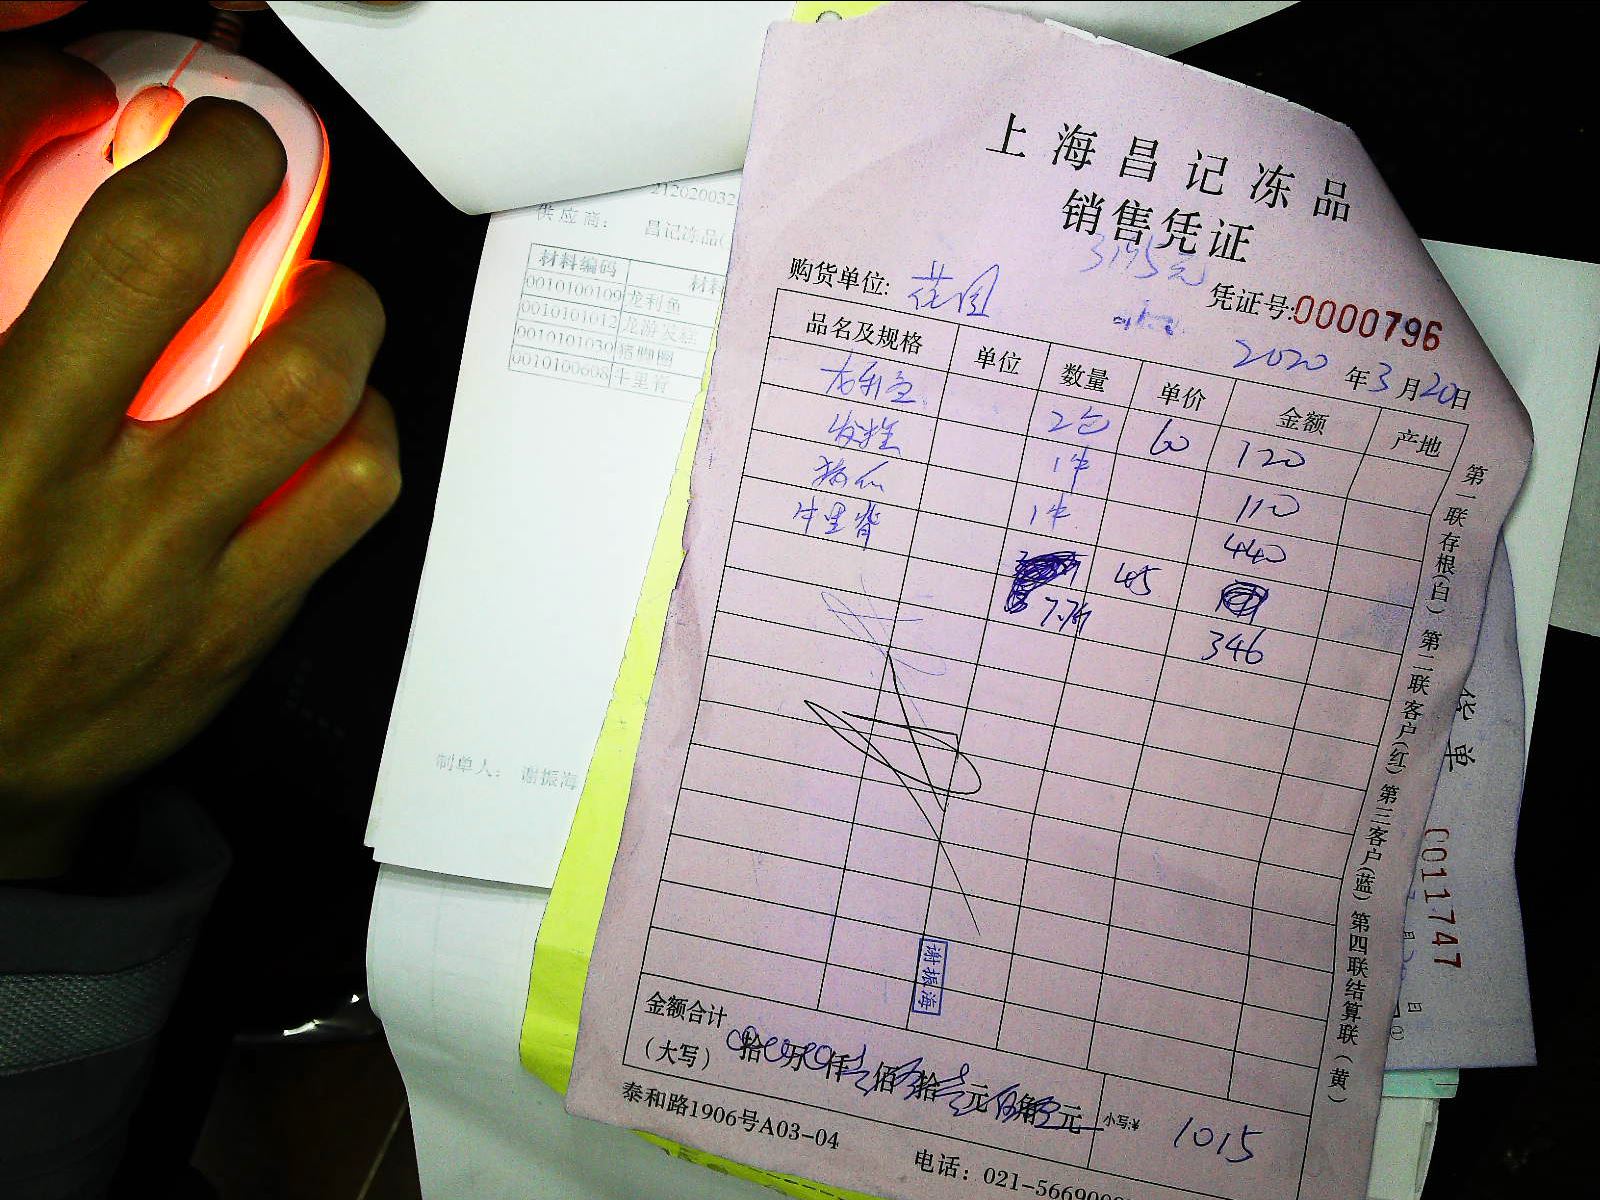 上海昌记冻品
销售凭证
3195元
购货单位: 花园
凭证号:0000796
2020年3月20日
品名及规格 单位 数量 单价 金额 产地
龙利鱼 2包 60 120
发糕 1件 110
1件 440
牛里脊 45
7.7斤 346
谢振海
金额合计
(大写) 拾 万 仟 佰 拾 元 角 元 小写:¥ 1015
泰和路1906号A03-04
电话: 021-5669000
第一联存根(白) 第二联客户(红) 第三客户(蓝) 第四联结算联(黄)
212020032
供应商: 昌记冻品(
材料编码 材料
0010100109 龙利鱼
0010101012
0010101030
0010100608 牛里脊
制单人: 谢振海
单
0011747